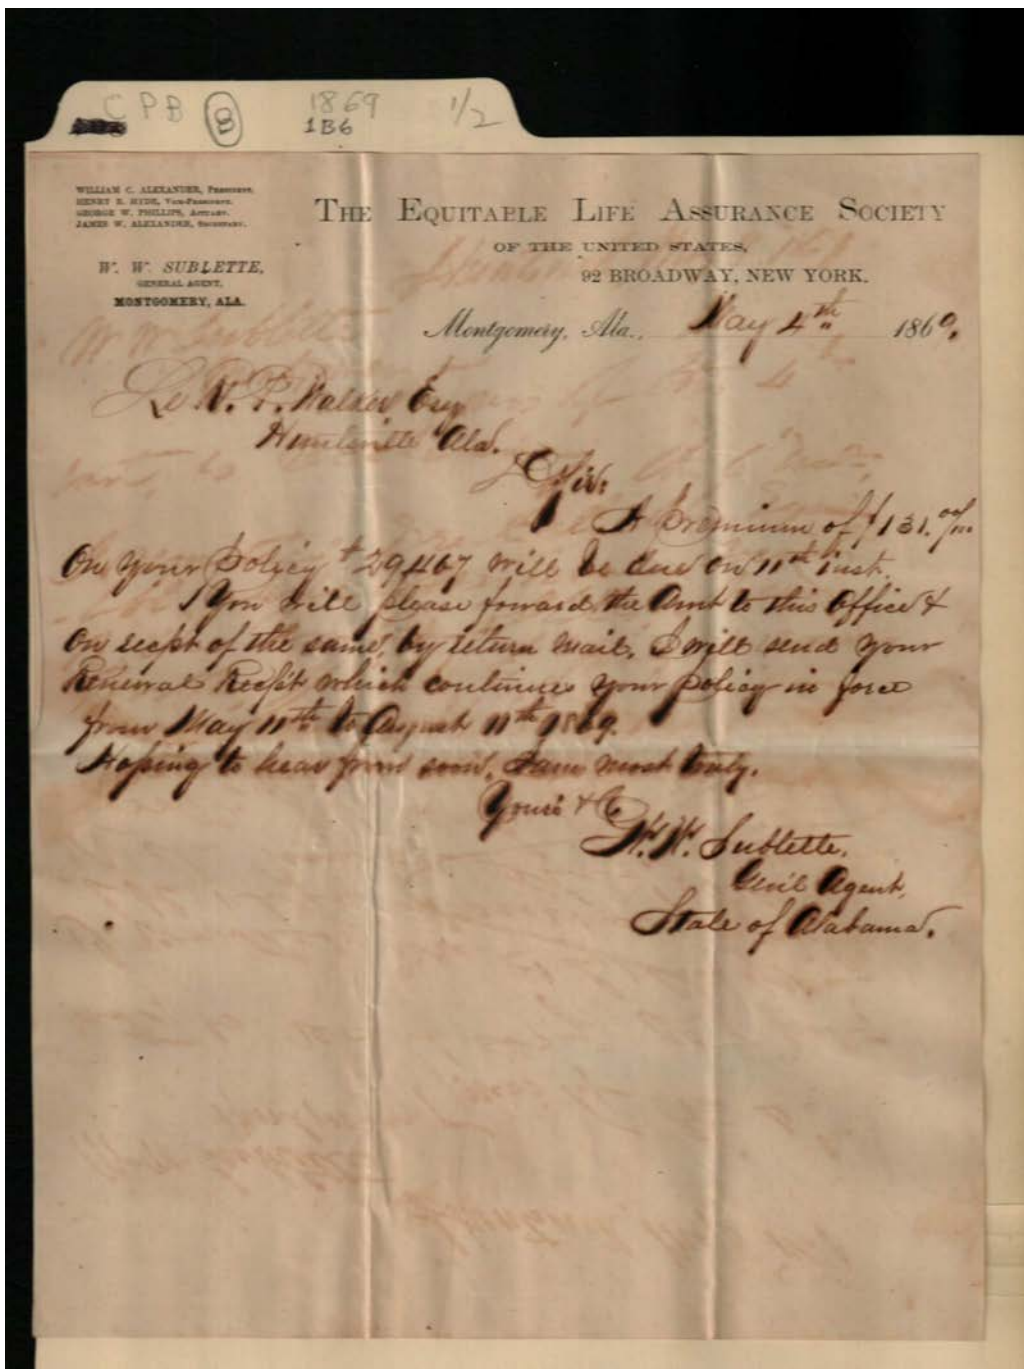 CPB 8 1869 1/2
1B6
WILLIAM C. ALEXANDER, PRESIDENT.
HENRY B. HYDE, VICE-PRESIDENT.
GEORGE W. PHILLIPS, ACTUARY.
JAMES W. ALEXANDER, SECRETARY.
W. W. SUBLETTE,
GENERAL AGENT,
MONTGOMERY, ALA.
THE EQUITABLE LIFE ASSURANCE SOCIETY
OF THE UNITED STATES,
92 BROADWAY, NEW YORK.
Montgomery, Ala., May 4th 1869.
L. P. Walker Esq
Huntsville Ala.
D Sir:
A Premium of $131. 00/100
On your Policy # 29467 will be due on 11th inst.
You will please forward the Amt to this Office &
on recpt of the same, by return mail, I will send your
Renewal Recpt which continues your policy in force
from May 11th to August 11th 1869.
Hoping to hear from soon, I am most truly.
Yours & C
W. W. Sublette,
Genl Agent,
State of Alabama.